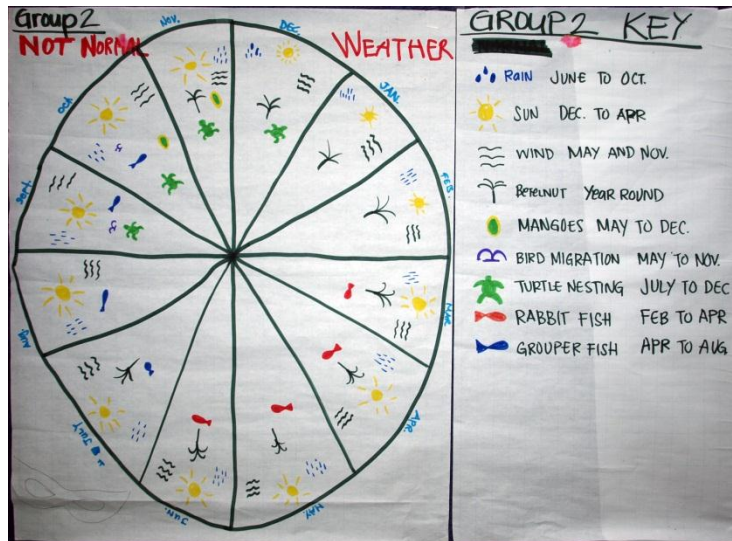 Group 2
NOT NORMAL WEATHER
NOV.
DEC.
JAN.
FEB.
MAR.
APR.
MAY.
JUN.
JULY
AUG
SEPT.
OCT
GROUP 2 KEY
RAIN JUNE TO OCT.
SUN DEC. TO APR
WIND MAY AND NOV.
BETELNUT YEAR ROUND
MANGOES MAY TO DEC.
BIRD MIGRATION MAY TO NOV.
TURTLE NESTING JULY TO DEC
RABBIT FISH FEB TO APR
GROUPER FISH APR TO AUG